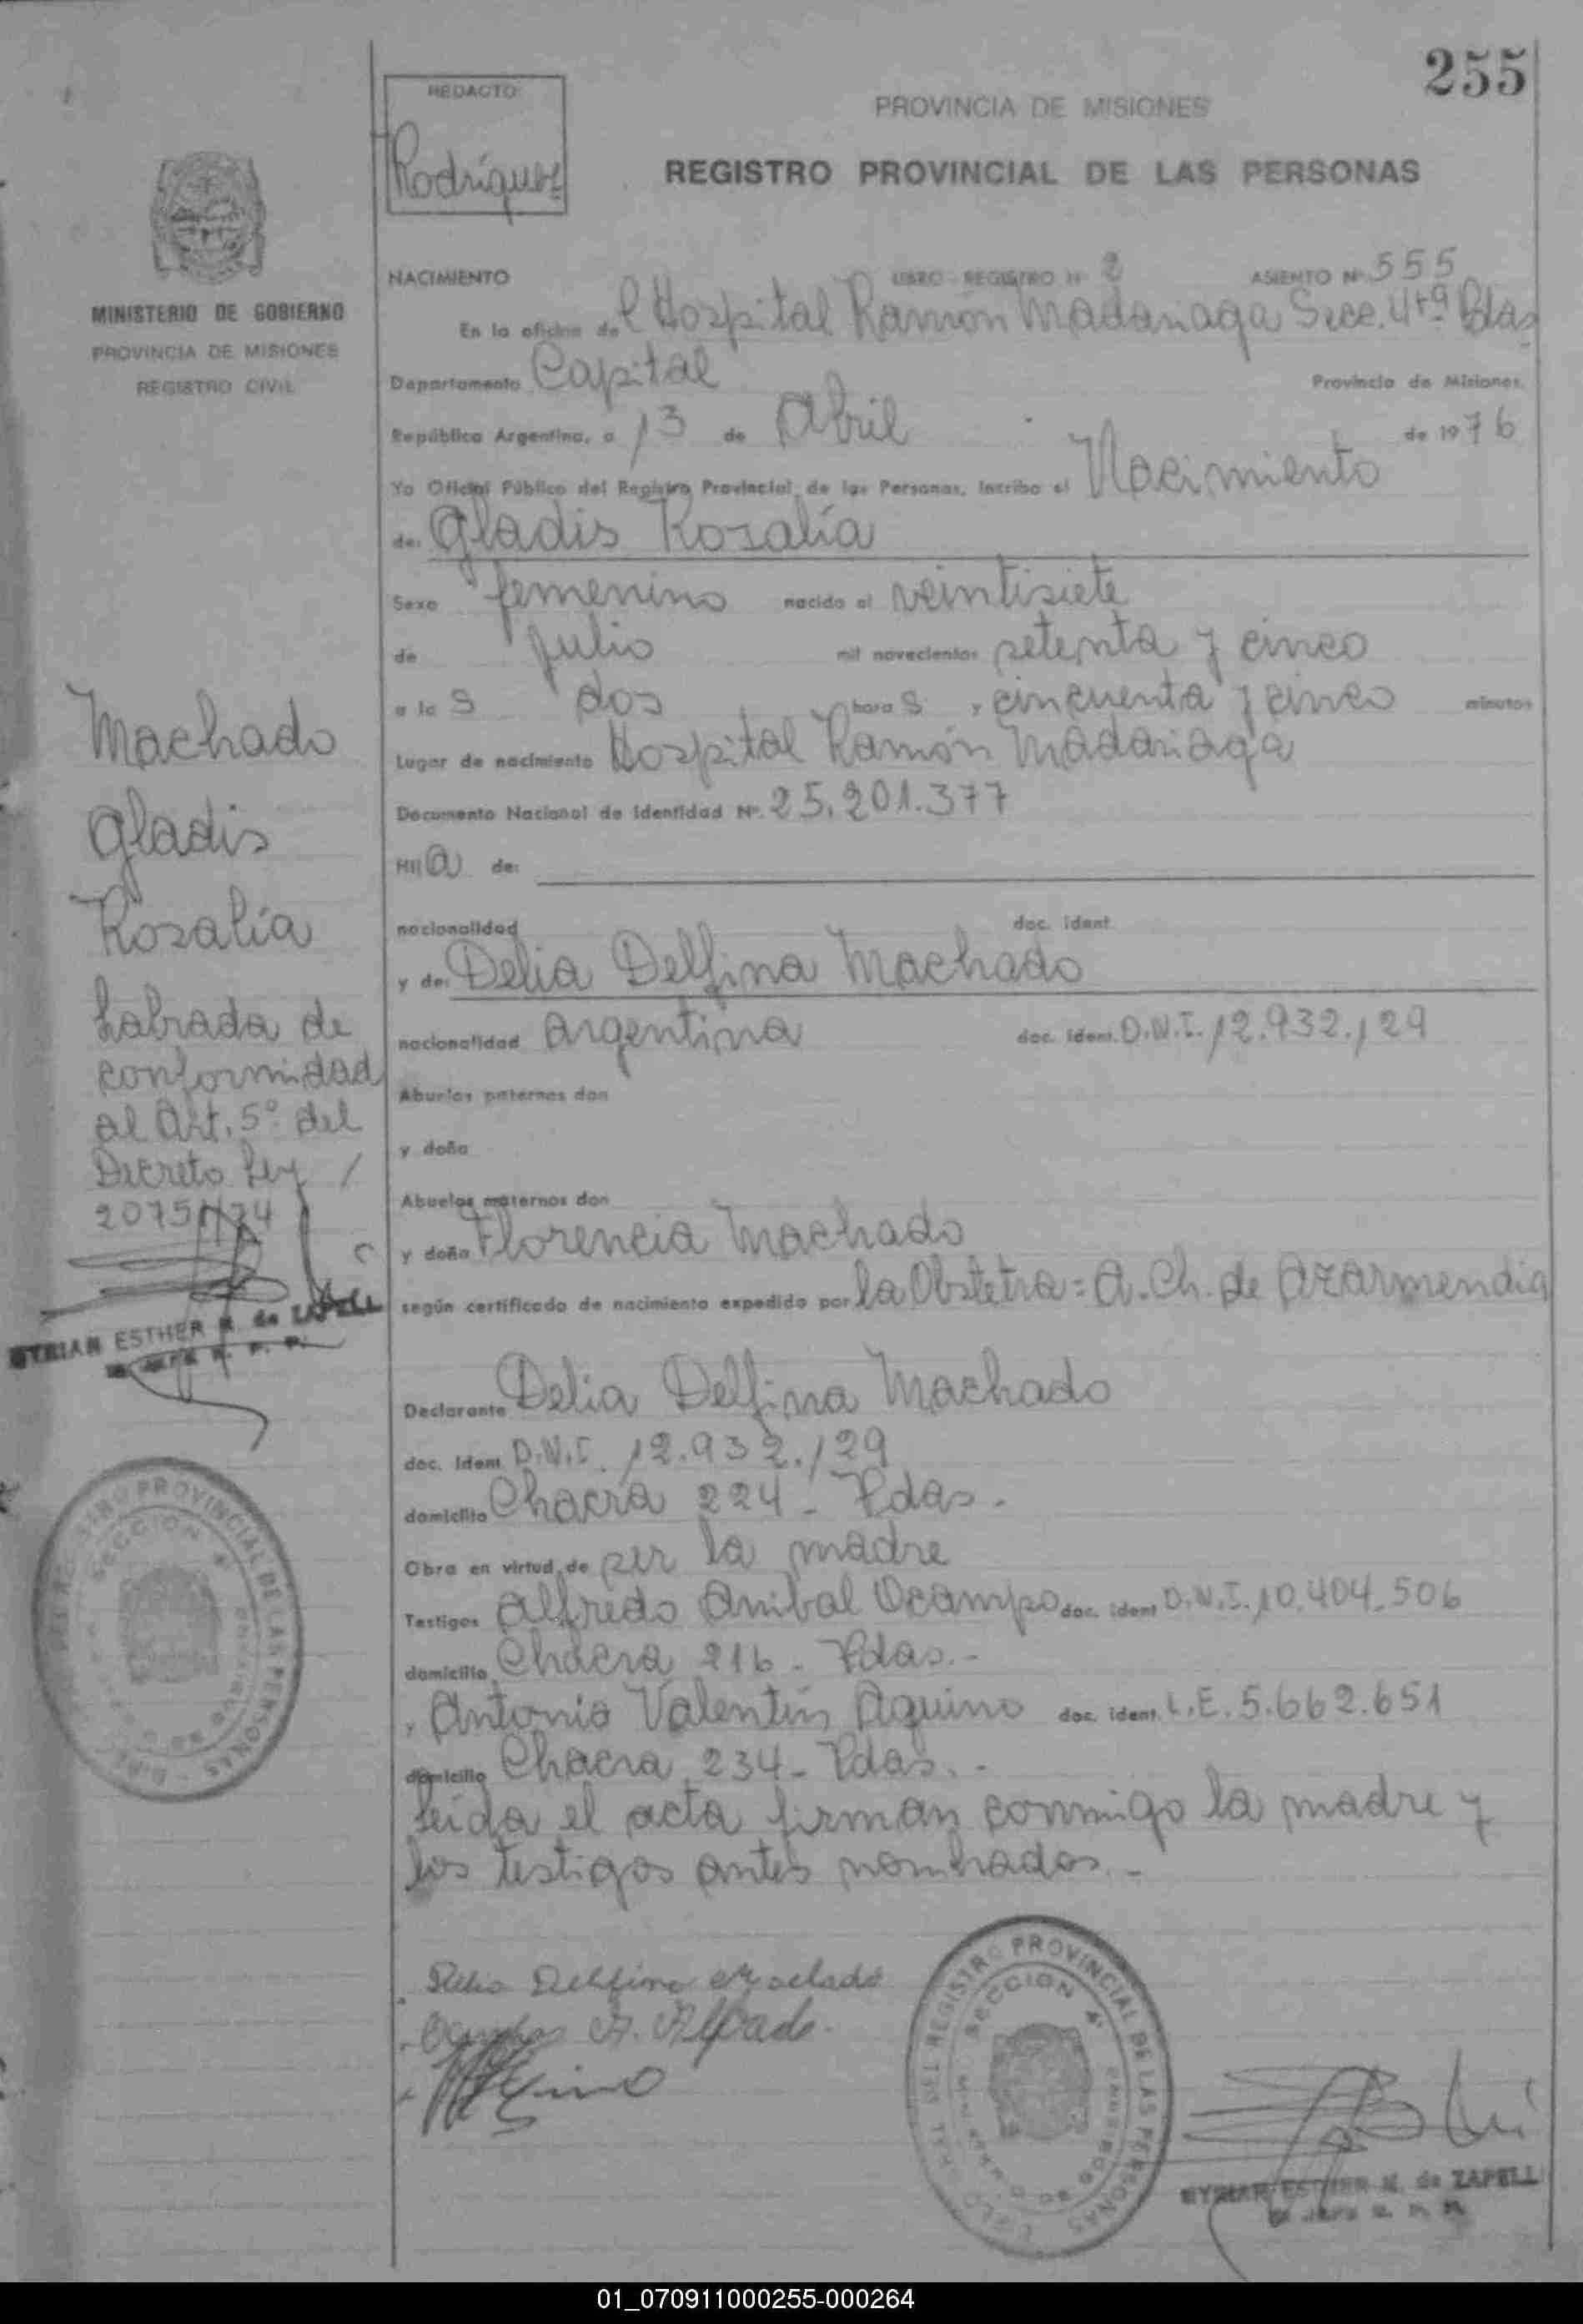 255
REDACTO:
Rodríguez
PROVINCIA DE MISIONES
REGISTRO PROVINCIAL DE LAS PERSONAS
MINISTERIO DE GOBIERNO
PROVINCIA DE MISIONES
REGISTRO CIVIL
NACIMIENTO LIBRO REGISTRO Nº 2 ASIENTO Nº 555
En la oficina del Hospital Ramón Madariaga Secc. 4tª Pdas
Departamento Capital Provincia de Misiones,
República Argentina, a 13 de Abril de 1976
Yo Oficial Público del Registro Provincial de las Personas, inscribo el Nacimiento
de: Gladis Rosalía
Sexo femenino nacido el veintisiete
de julio mil novecientos setenta y cinco
a las dos horas y cincuenta y cinco minutos
Lugar de nacimiento Hospital Ramón Madariaga
Documento Nacional de Identidad Nº 25.201.377
Hija de:
nacionalidad doc. ident.
y de: Delia Delfina Machado
nacionalidad Argentina doc. ident. D.N.I. 12.932.129
Abuelos paternos don
y doña
Abuelos maternos don
y doña Florencia Machado
según certificado de nacimiento expedido por la Obstetra = A. Ch. de Azarmendia
Declarante Delia Delfina Machado
doc. ident. D.N.I. 12.932.129
domicilio Chacra 224 - Pdas.
Obra en virtud de ser la madre
Testigos Alfredo Anibal Ocampo doc. ident. D.N.I. 10.404.506
domicilio Chacra 216 - Pdas.-
y Antonio Valentín Aquino doc. ident. L.E. 5.662.651
domicilio Chacra 234 - Pdas.-
Leída el acta firman conmigo la madre y
los testigos antes nombrados.-
Machado
Gladis
Rosalía
Labrada de
conformidad
al Art. 5º del
Decreto Ley /
20751/74
ESTHER M. de ZAPELLI
REGISTRO PROVINCIAL DE LAS PERSONAS
SECCION 4ª
Delia Delfina Machado
DEL REGISTRO PROVINCIAL DE LAS PERSONAS
SECCION 4ª
ESTHER M. de ZAPELLI
01_070911000255-000264